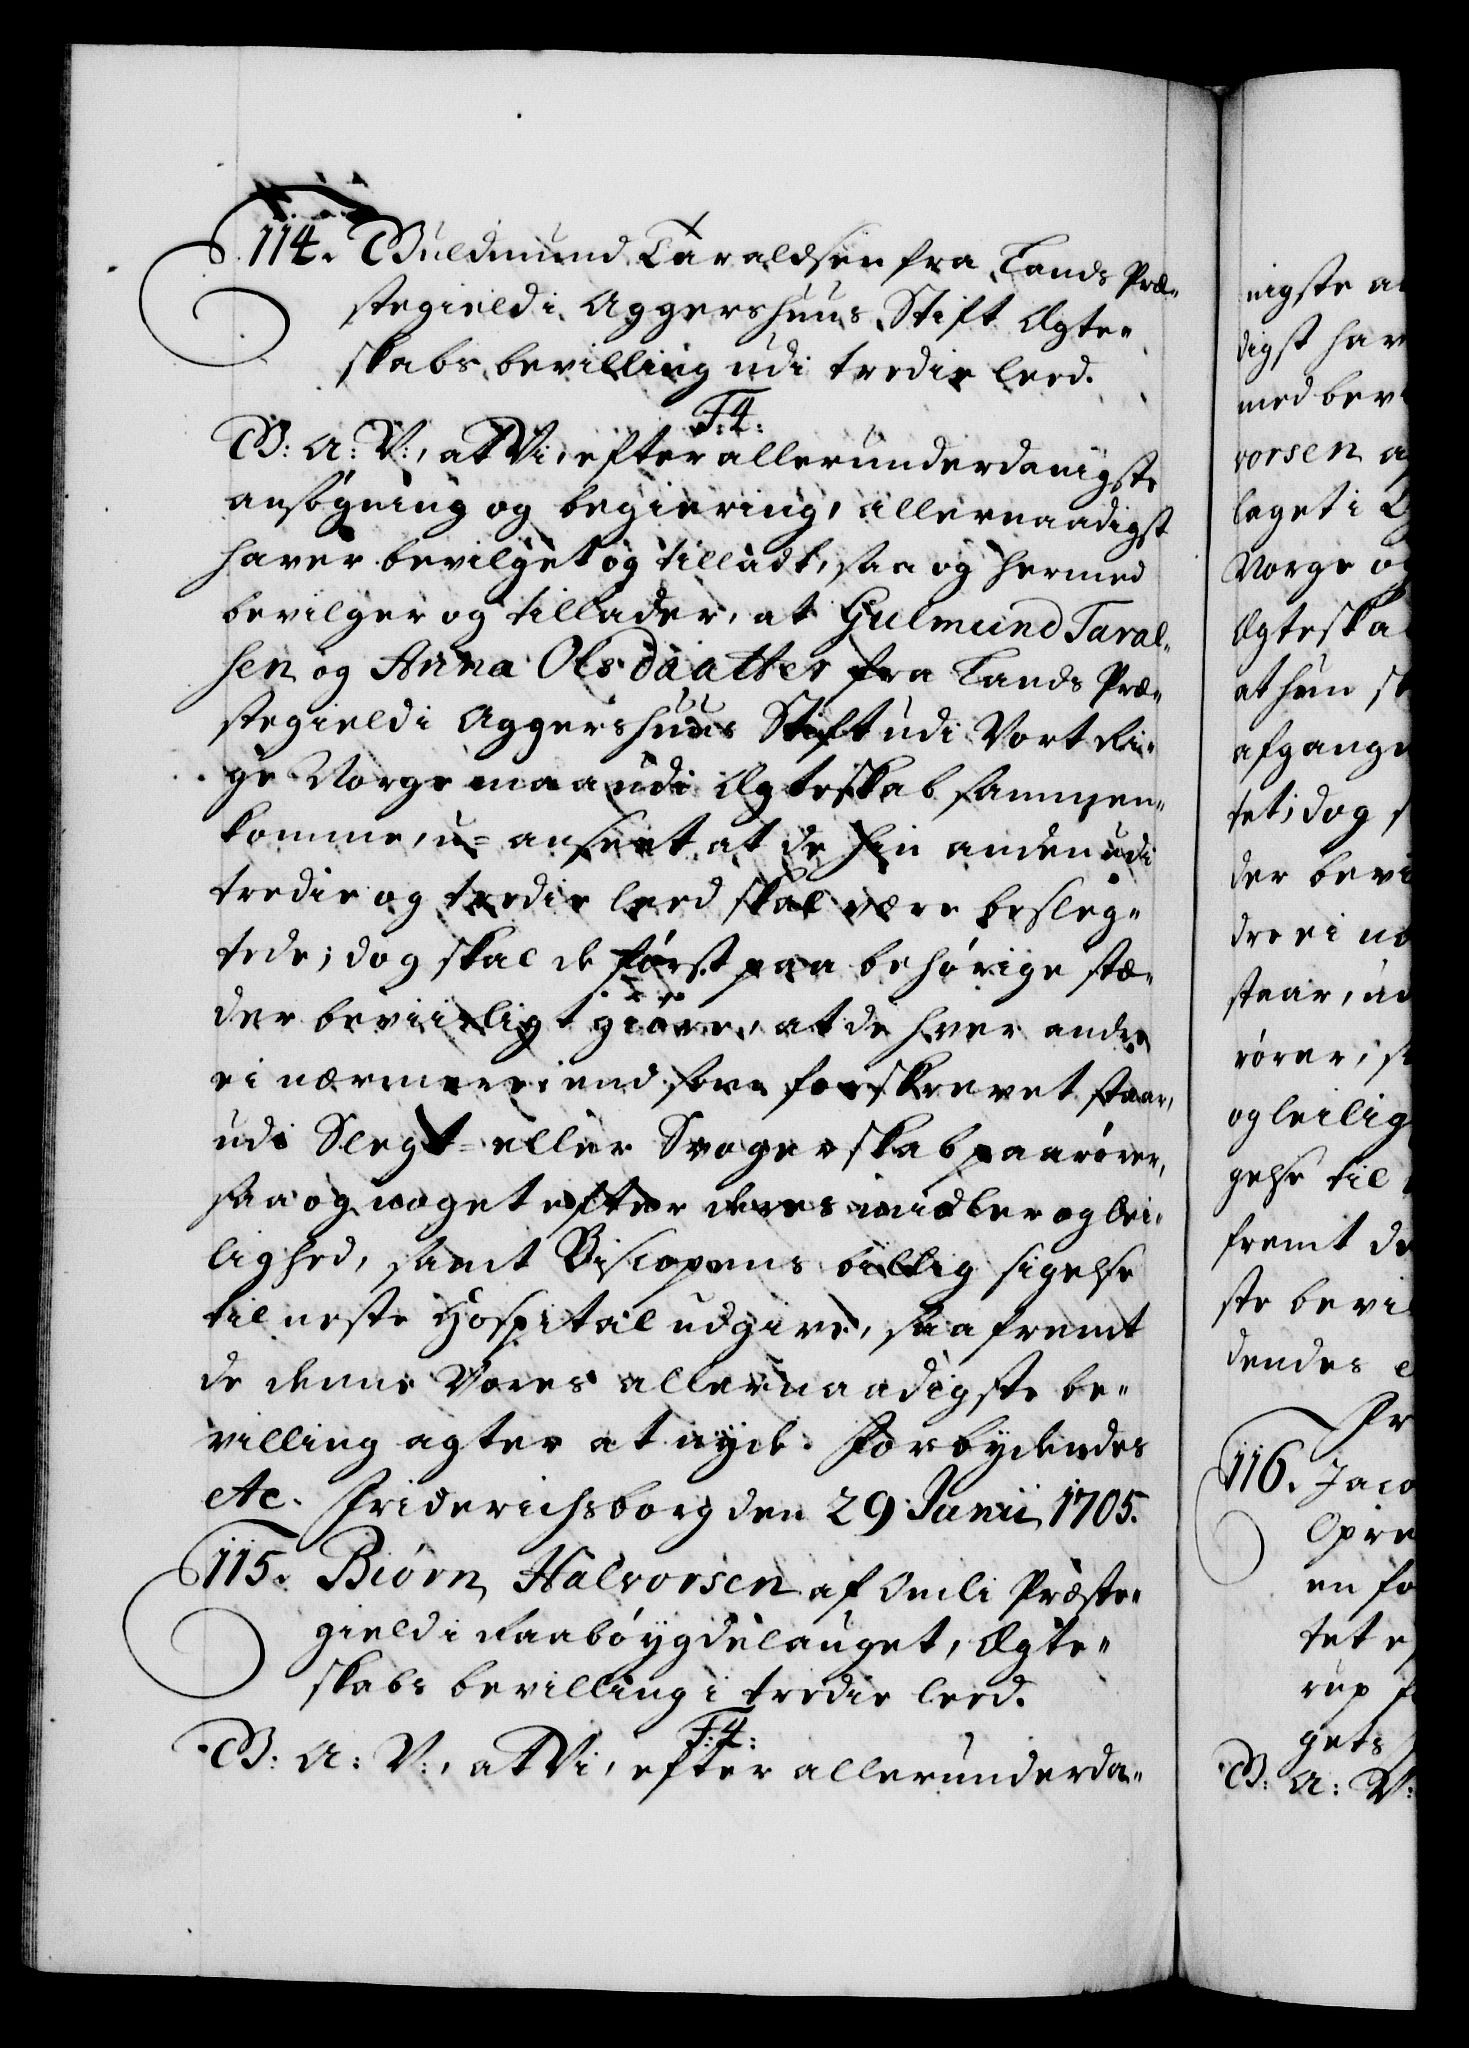 114. Guldmund Taraldsen fra Lands Præ-
stegield i Aggershuus Stift Ægte-
skabs bevilling udi tredie leed.
F:4:
G: A: V:, at Vi, efter allerunderdanigste
ansøgning og begiering, allernaadigst
haver bevilget og tilladt, saa og hermed
bevilger og tillader, at Gulmund Taral-
sen og Anna Olsdaatter fra Lands Præ-
stegield i Aggershuus Stift udi Vort Ri-
ge Norge maa udi Ægteskab sammen-
komme, u-anseet at de hin anden udi
tredie og tredie leed skal være besleg-
tede; dog skal de først paa behørige stæ-
der beviislig giøre, at de hver andre
ei nærmere end som forskrevet staar,
udi Slegt- eller Svogerskab paarører,
saa og noget efter deres midler og lei-
lighed, samt Biscopens billig sigelse
til neste Hospital udgive, saafremt
de denne Vores allernaadigste be-
villing agter at nyde. Forbydendes
etc. Friderichsborg den 29 Junii 1705.
115. Biørn Halvorsen af Omli Præste-
gield i Raabøygdelauget, Ægte-
skabs bevilling i tredie leed.
F:4:
G: A: V:, at Vi, efter allerunderda-
nigste an
digst hav
med bev
vorsen a
laget i
Norge og
Ægteska
at hun
afgange
tet; dog s
der bevi
dre ei n
staar, ud
rører, s
og leilig
gelse til
fremt de
ste bevil
dendes e
Fr
116. Jaco
Opre
en fo
tet e
rup f
gets
G: A: V: